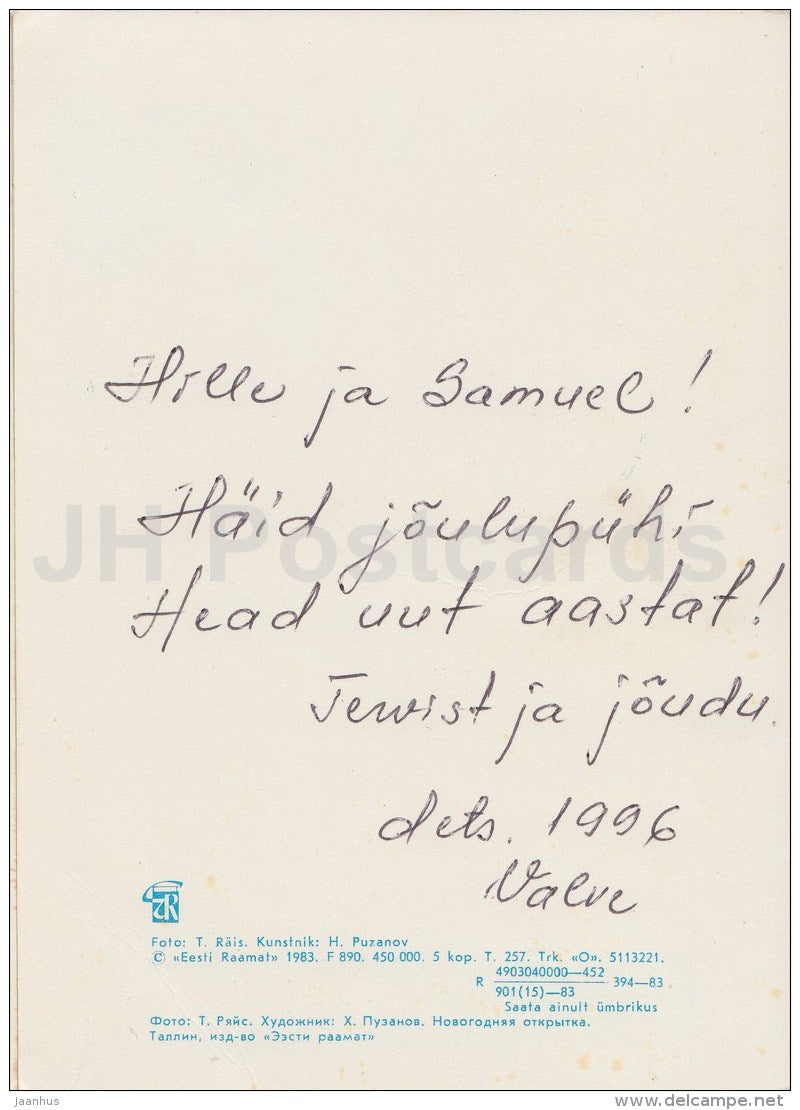 Hille ja Samuel!
Häid jõulupühi
Head uut aastat!
Tervist ja jõudu.
dets. 1996
Valve
JH Postcards
Foto: T. Räis. Kunstnik: H. Puzanov
© «Eesti Raamat» 1983. F 890. 450 000. 5 kop. T. 257. Trk. «O». 5113221.
R 4903040000—452 394—83
901(15)—83
Saata ainult ümbrikus
Фото: Т. Ряйс. Художник: Х. Пузанов. Новогодняя открытка.
Таллин, изд-во «Ээсти раамат»
Jaanhus
www.delcampe.net